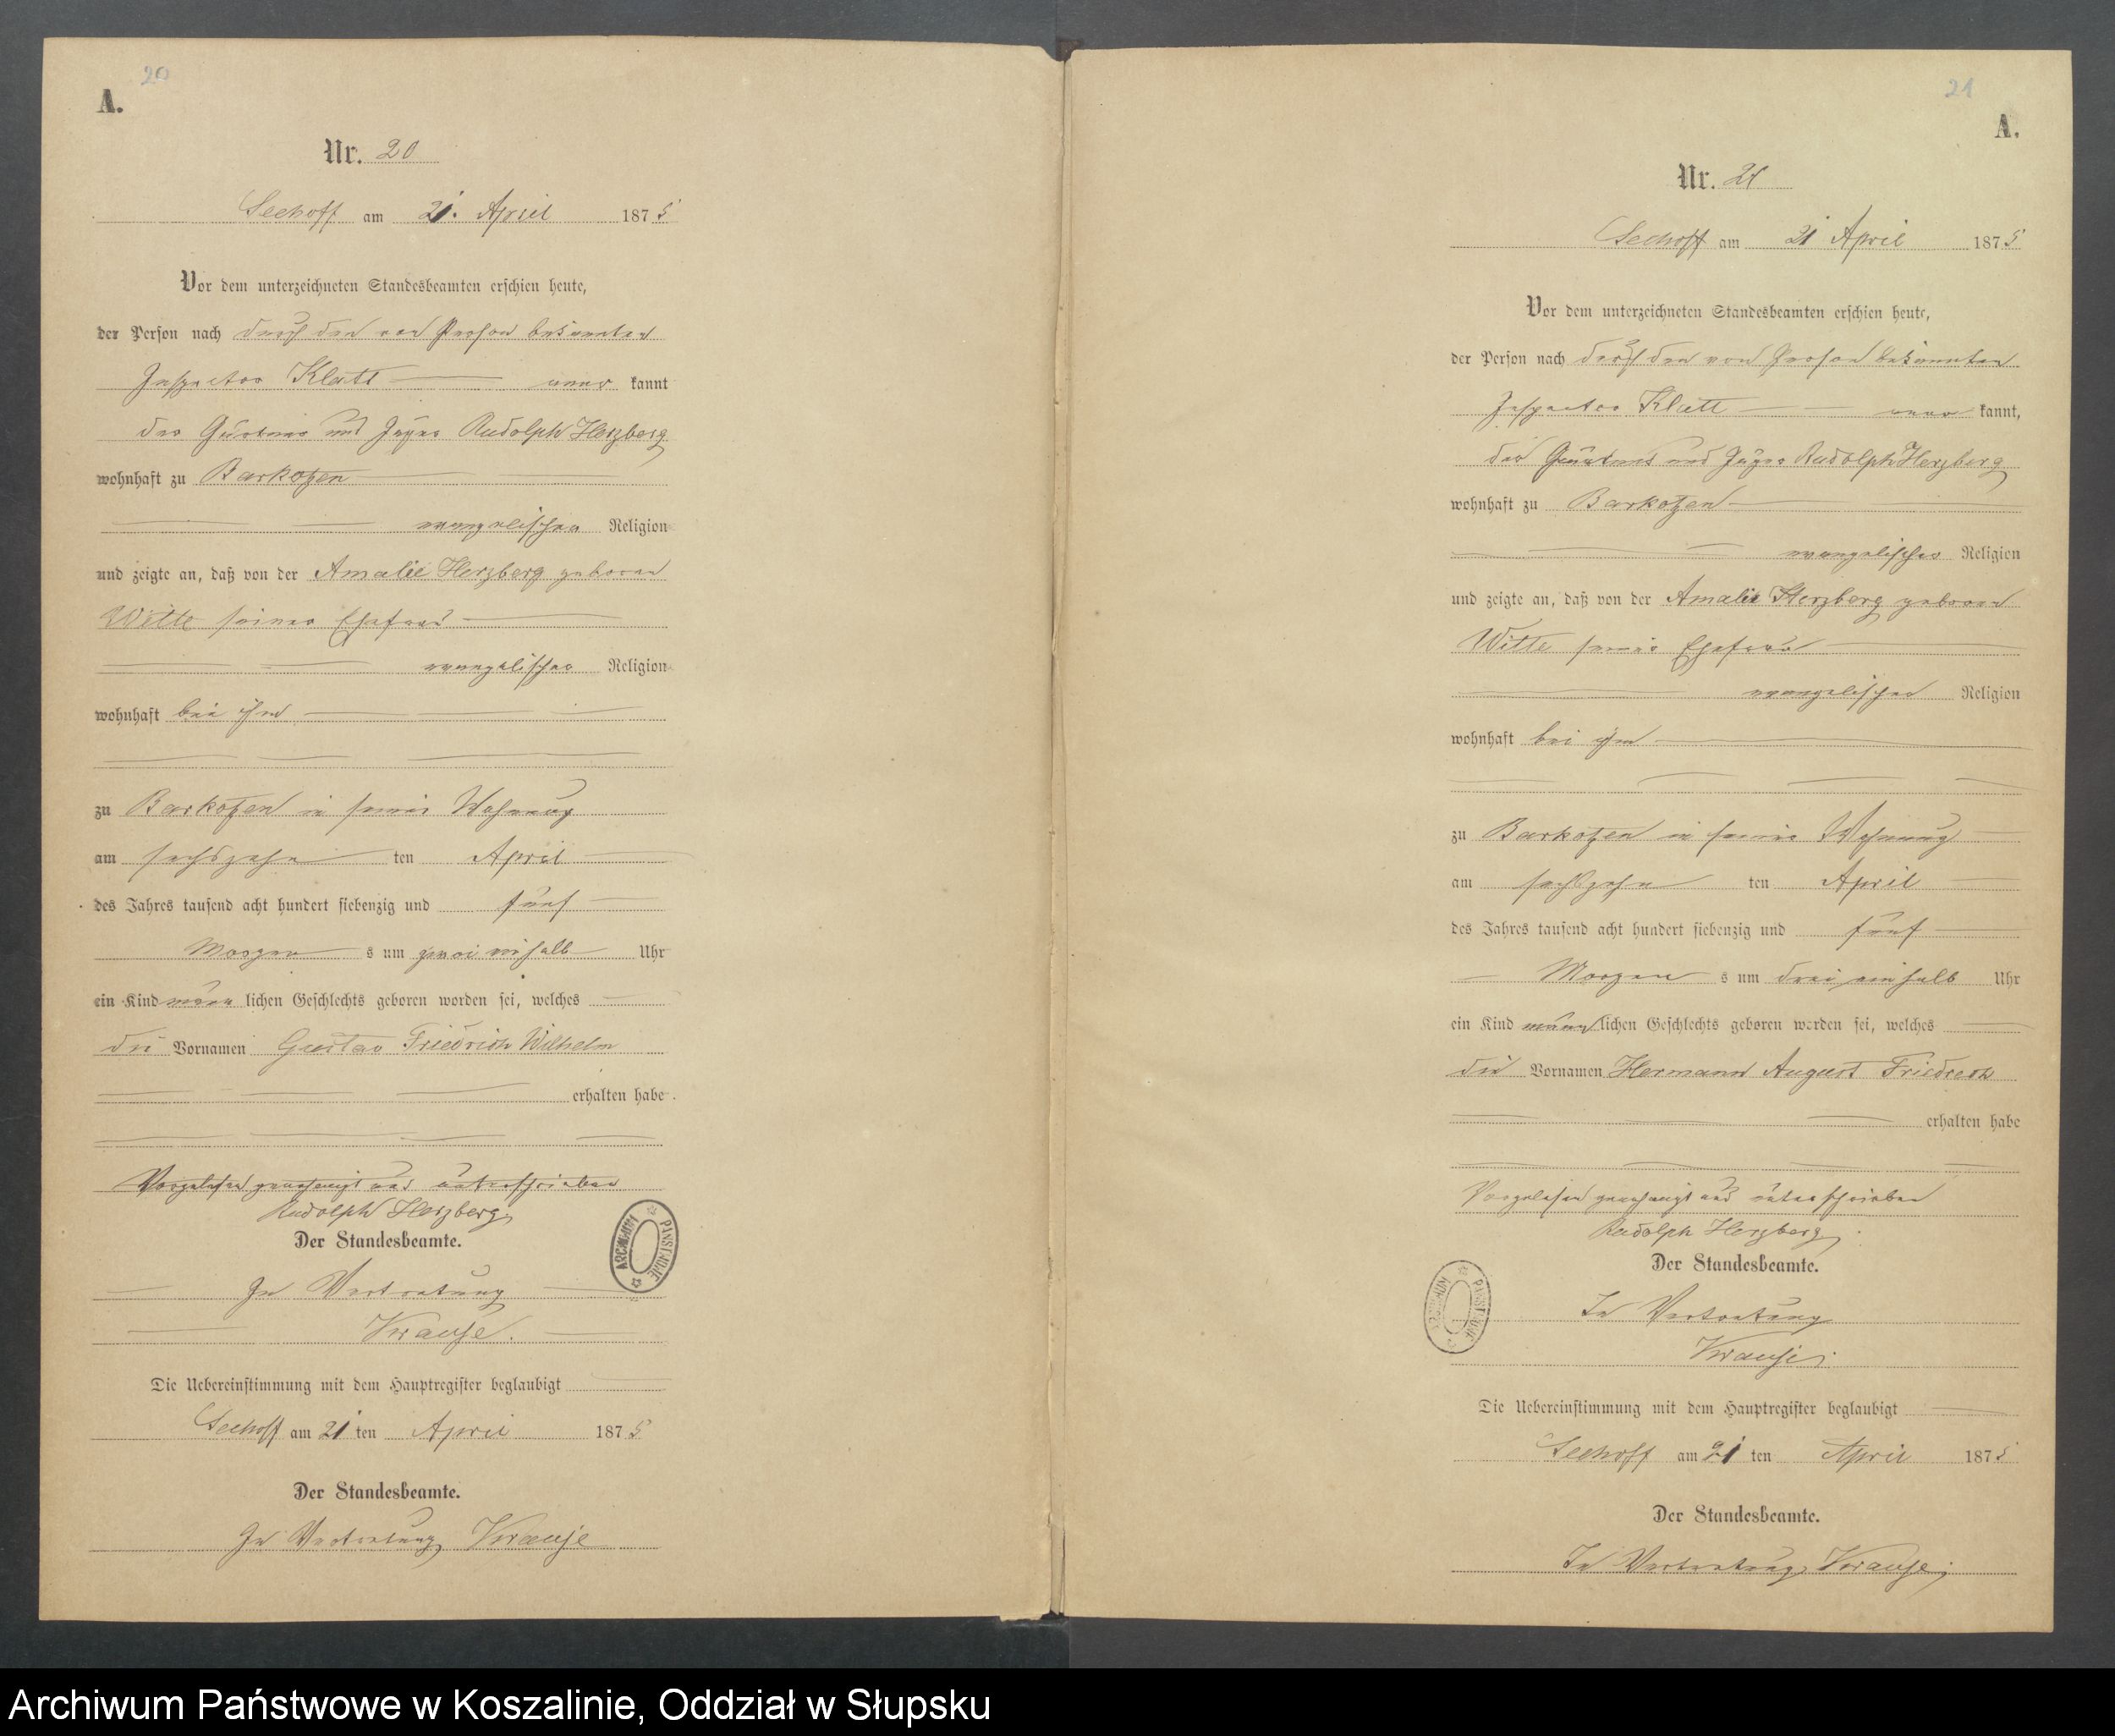 20
A.
Nr. 20
Seehoff am 21. April 1875
Vor dem unterzeichneten Standesbeamten erschien heute,
der Person nach durch den von Person bekannten
Inspector Klatt aner kannt
der Gärtner und Jäger Rudolph Herzberg
wohnhaft zu Barkotzen
evangelischer Religion
und zeigte an, daß von der Amalie Herzberg geboren
Witte seiner Ehefrau
evangelischer Religion
wohnhaft bei ihm
zu Barkotzen in seiner Wohnung
am sechszehn ten April
des Jahres tausend acht hundert siebenzig und fünf
Morgen s um zwei einhalb Uhr
ein Kind männ lichen Geschlechts geboren worden sei, welches
die Vornamen Gustav Friedrich Wilhelm
erhalten habe
Vorgelesen genehmigt und unterschrieben
Rudolph Herzberg
Der Standesbeamte.
In Vertretung
Krause.
Die Uebereinstimmung mit dem Hauptregister beglaubigt
Seehoff am 21 ten April 1875
Der Standesbeamte.
In Vertretung Krause
ARCHIWUM PAŃSTWOWE
21
A.
Nr. 21
Seehoff am 21 April 1875
Vor dem unterzeichneten Standesbeamten erschien heute,
der Person nach durch den von Person bekannten
Inspector Klatt aner kannt,
der Gärtner und Jäger Rudolph Herzberg
wohnhaft zu Barkotzen
evangelischer Religion
und zeigte an, daß von der Amalie Herzberg geboren
Witte seiner Ehefrau
evangelischer Religion
wohnhaft bei ihm
zu Barkotzen in seiner Wohnung
am sechszehn ten April
des Jahres tausend acht hundert siebenzig und fünf
Morgen s um drei einhalb Uhr
ein Kind männ lichen Geschlechts geboren worden sei, welches
die Vornamen Hermann August Friedrich
erhalten habe
Vorgelesen genehmigt und unterschrieben
Rudolph Herzberg
Der Standesbeamte.
In Vertretung
Krause.
Die Uebereinstimmung mit dem Hauptregister beglaubigt
Seehoff am 21 ten April 1875
Der Standesbeamte.
In Vertretung Krause.
ARCHIWUM PAŃSTWOWE
Archiwum Państwowe w Koszalinie, Oddział w Słupsku